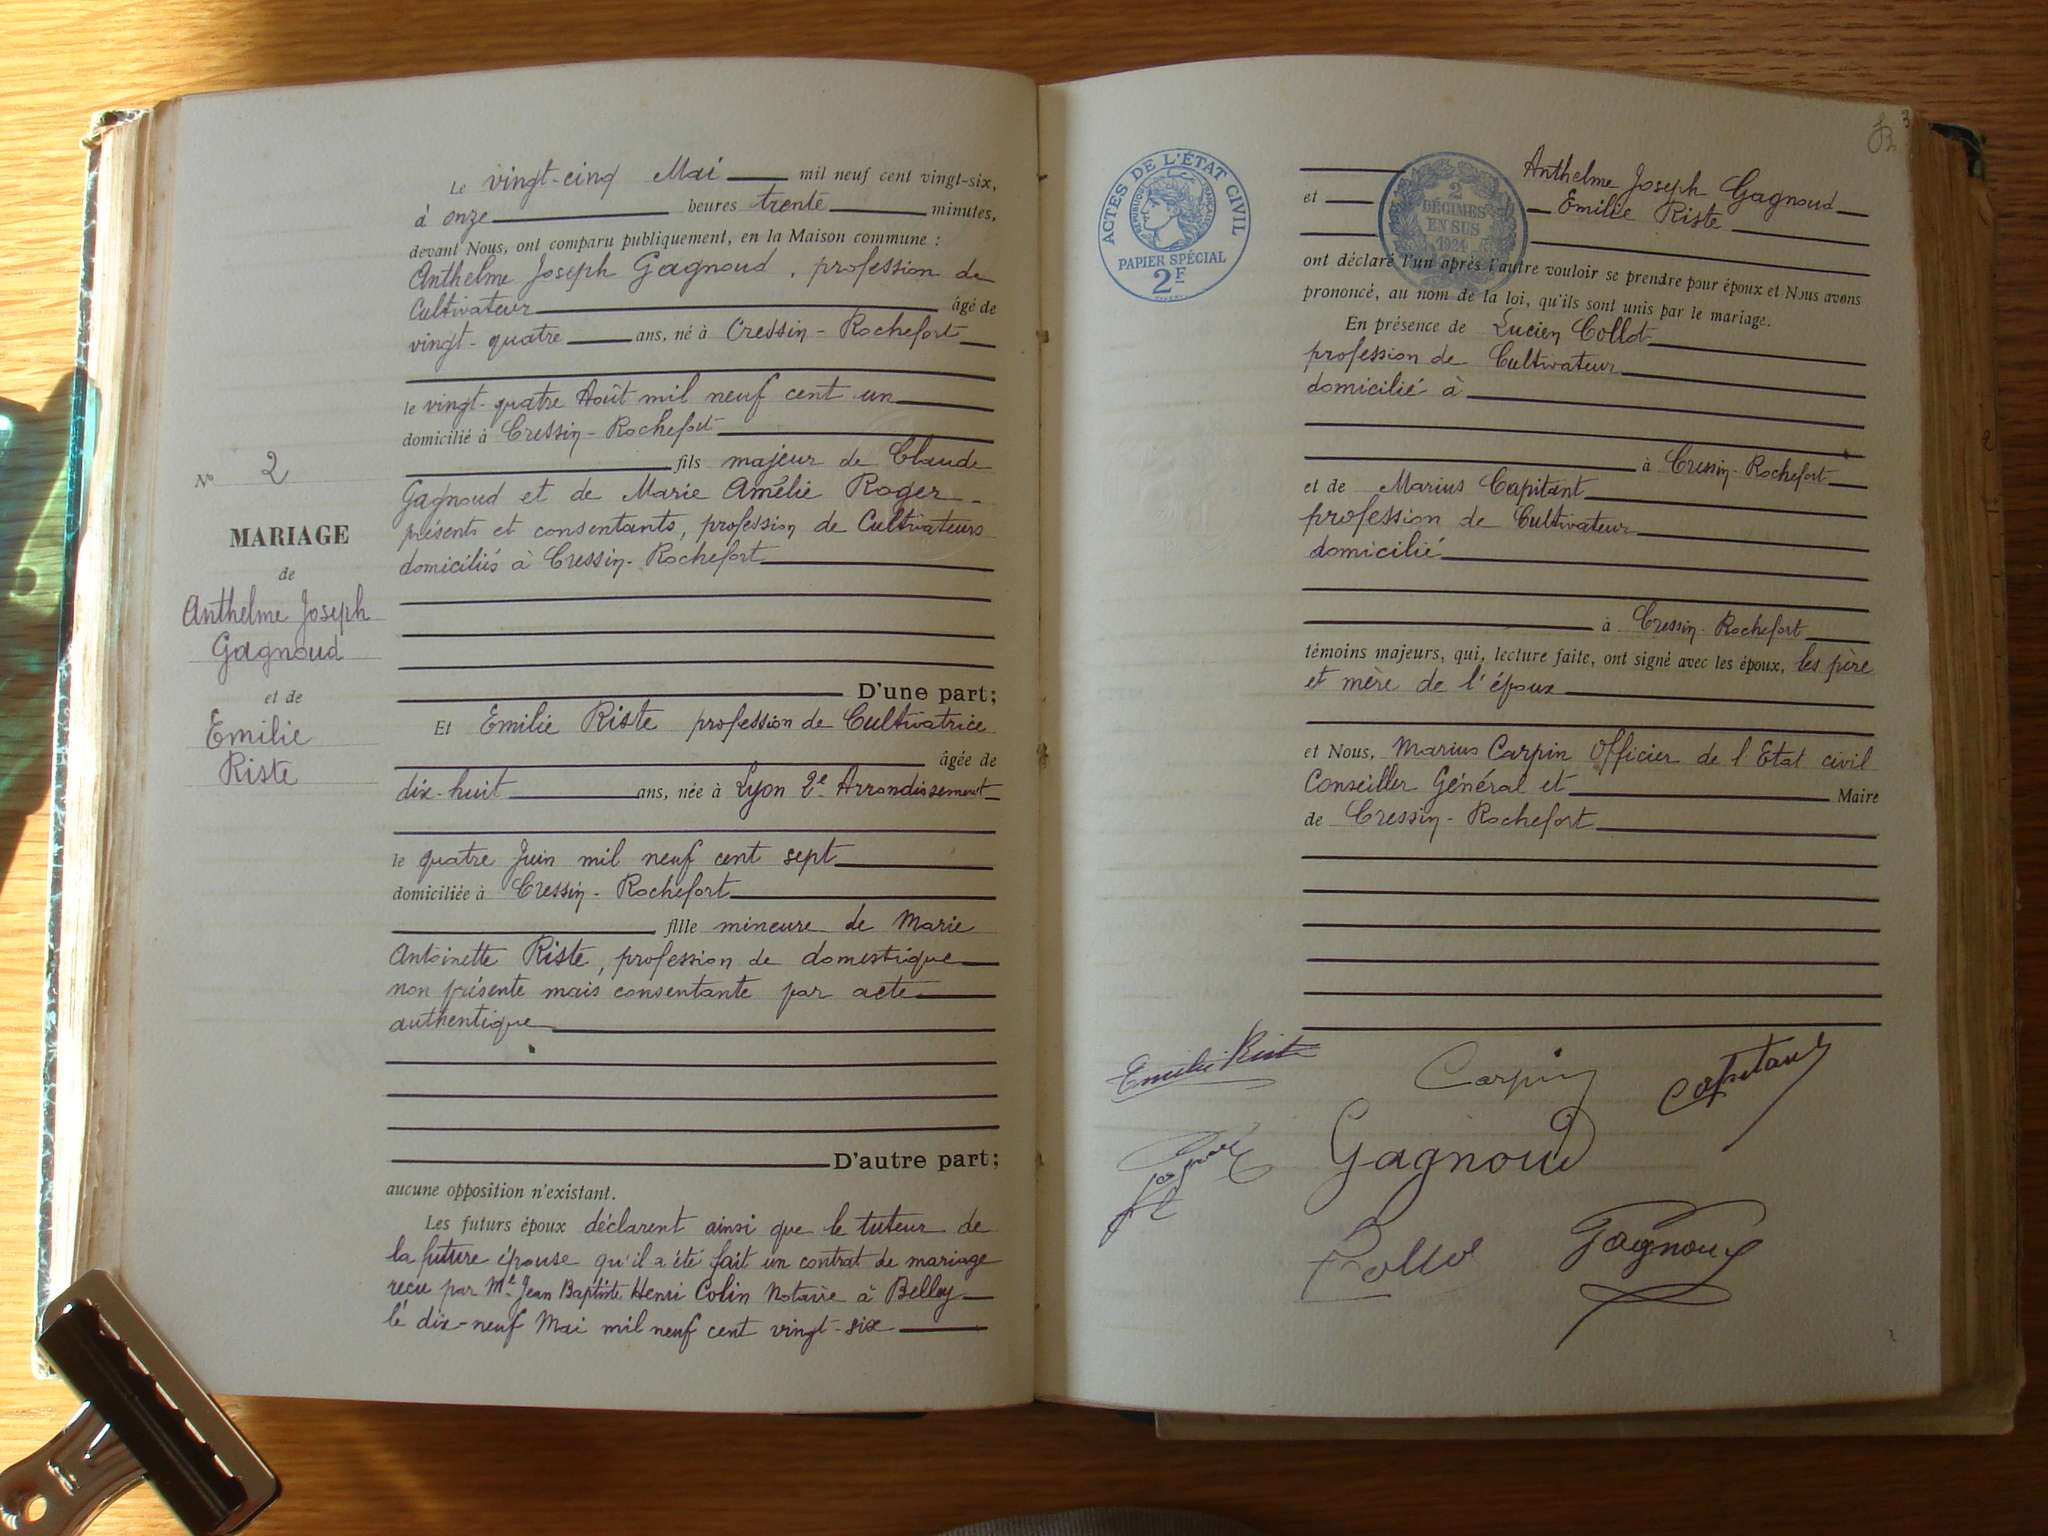 Le vingt-cinq Mai mil neuf cent vingt-six,
à onze heures trente minutes,
devant Nous, ont comparu publiquement, en la Maison commune :
Anthelme Joseph Gagnoud, profession de
Cultivateur âgé de
vingt-quatre ans, né à Cressin-Rochefort
le vingt-quatre Août mil neuf cent un
domicilié à Cressin-Rochefort
fils majeur de Claude
Gagnoud et de Marie Amélie Roger
présents et consentants, profession de Cultivateurs
domiciliés à Cressin-Rochefort
D'une part;
Et Emilie Riste profession de Cultivatrice
âgée de
dix-huit ans, née à Lyon 2e Arrondissement
le quatre Juin mil neuf cent sept
domiciliée à Cressin-Rochefort
fille mineure de Marie
Antoinette Riste, profession de domestique
non présente mais consentante par acte
authentique
D'autre part;
aucune opposition n'existant.
Les futurs époux déclarent ainsi que le tuteur de
la future épouse qu'il a été fait un contrat de mariage
reçu par Me Jean Baptiste Henri Colin Notaire à Belley
le dix-neuf Mai mil neuf cent vingt-six
No 2
MARIAGE
de
Anthelme Joseph
Gagnoud
et de
Emilie
Riste
3
ACTES DE L'ÉTAT CIVIL
RÉPUBLIQUE FRANÇAISE
PAPIER SPÉCIAL
2F
2
DÉCIMES
EN SUS
1924
Anthelme Joseph Gagnoud
et Emilie Riste
ont déclaré l'un après l'autre vouloir se prendre pour époux et Nous avons
prononcé, au nom de la loi, qu'ils sont unis par le mariage.
En présence de Lucien Collot
profession de Cultivateur
domicilié à
à Cressin-Rochefort
et de Marius Capitant
profession de Cultivateur
domicilié
à Cressin-Rochefort
témoins majeurs, qui, lecture faite, ont signé avec les époux, les père
et mère de l'époux
et Nous, Marius Carpin Officier de l'Etat civil
Conseiller Général et Maire
de Cressin-Rochefort
Emilie Riste
Carpin
Capitant
Gagnoud
Collot
Gagnoud